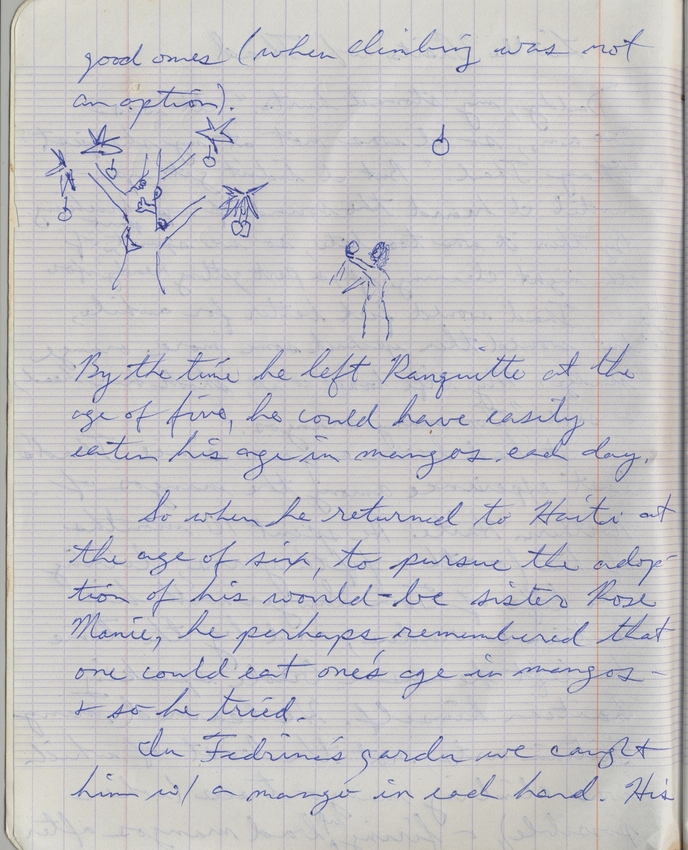 good ones (when climbing was not
an option).
By the time he left Ranquitte at the
age of five, he could have easily
eaten his age in mangos each day.
So when he returned to Haiti at
the age of six, to pursue the adop-
tion of his would-be sister Rose
Manie, he perhaps remembered that
one could eat one's age in mangos -
& so he tried.
In Fedrine's garden we caught
him w/ a mango in each hand. His